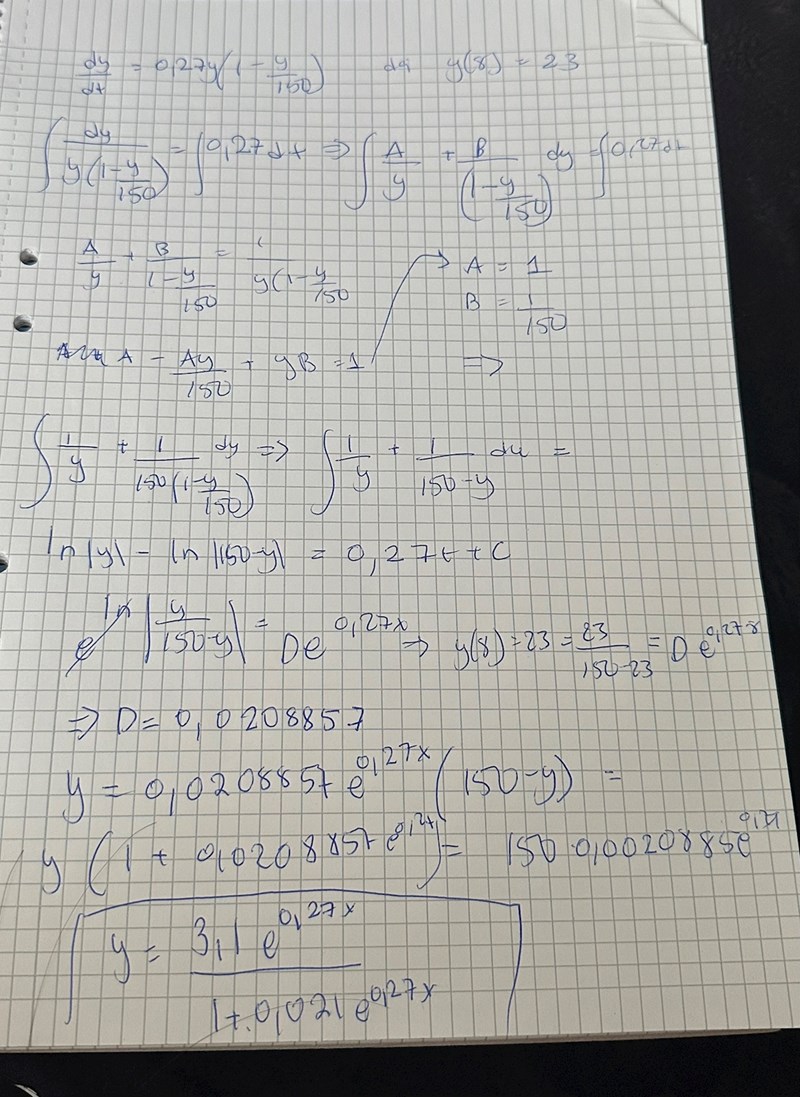 dy/dt = 0,27y(1 - y/150) då y(8) = 23
∫ dy/(y(1-y/150)) = ∫ 0,27 dt ⇒ ∫ A/y + B/(1-y/150) dy = ∫ 0,27 dt
A/y + B/(1-y/150) = 1/(y(1-y/150)
A = 1
B = 1/150
A - Ay/150 + yB = 1 ⇒
∫ 1/y + 1/(150(1-y/150)) dy ⇒ ∫ 1/y + 1/(150-y) du =
ln|y| - ln|150-y| = 0,27t + C
e^ln|y/(150-y)| = De^0,27x ⇒ y(8) = 23 = 23/(150-23) = D e^0,27·8
⇒ D = 0,0208857
y = 0,0208857 e^0,27x (150-y) =
y (1 + 0,0208857 e^0,27) = 150 · 0,0020885e^0,27
y = 3,1 e^0,27x / (1 + 0,021 e^0,27x)